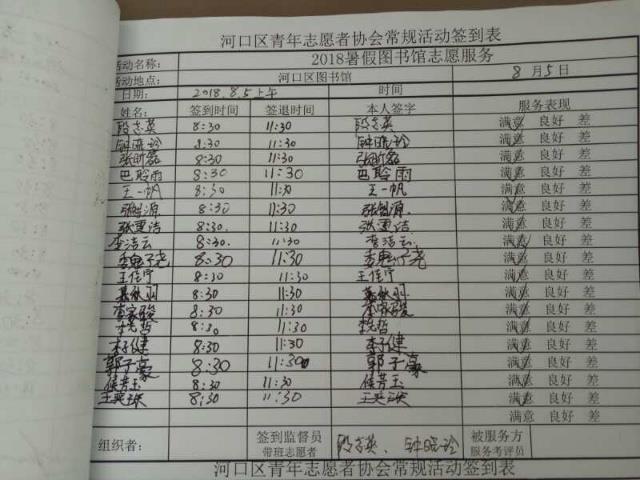 河口区青年志愿者协会常规活动签到表
活动名称: 2018暑假图书馆志愿服务
活动地点: 河口区图书馆 8月5日
日期: 2018.8.5上午 时间
姓名: 签到时间 签退时间 本人签字 服务表现
段志英 8:30 11:30 段志英 满意 良好 差
钟晓玲 8:30 11:30 钟晓玲 满意 良好 差
张昕磊 8:30 11:30 张昕磊 满意 良好 差
巴聆雨 8:30 11:30 巴聆雨 满意 良好 差
王一帆 8:30 11:30 王一帆 满意 良好 差
张智源 8:30 11:30 张智源 满意 良好 差
张惠洁 8:30. 11:30 张惠洁 满意 良好 差
李洁云 8:30. 11:30 李洁云. 满意 良好 差
8:30 11:30 满意 良好 差
王佳宁 8:30 11:30 王佳宁 满意 良好 差
8:30 11:30 满意 良好 差
李家骏 8:30 11:30 李家骏 满意 良好 差
8:30 11:30 满意 良好 差
李子健 8:30 11:30 李子健 满意 良好 差
郭子豪 8:30 11:30 郭子豪 满意 良好 差
侯芳玉 8:30 11:30 侯芳玉 满意 良好 差
王奕珠 8:30 11:30 王奕珠 满意 良好 差
满意 良好 差
组织者: 签到监督员 段志英、钟晓玲 被服务方
带班志愿者 服务考评员
河口区青年志愿者协会常规活动签到表